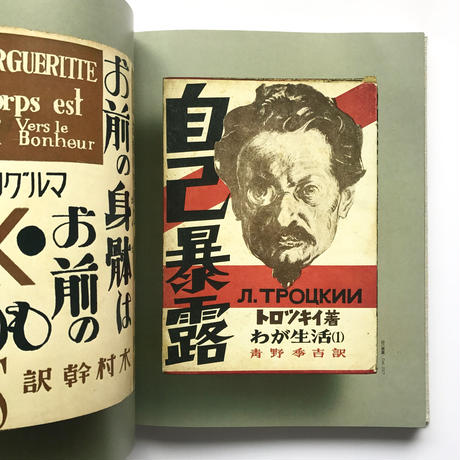 RGUERITTE
orps est
Vers le
Bonheur
お前の身骵は
マルグリ
お前の
水村幹訳
自己暴露
Л. ТРОЦКИИ
トロツキイ著
わが生活(1)
青野季吉訳